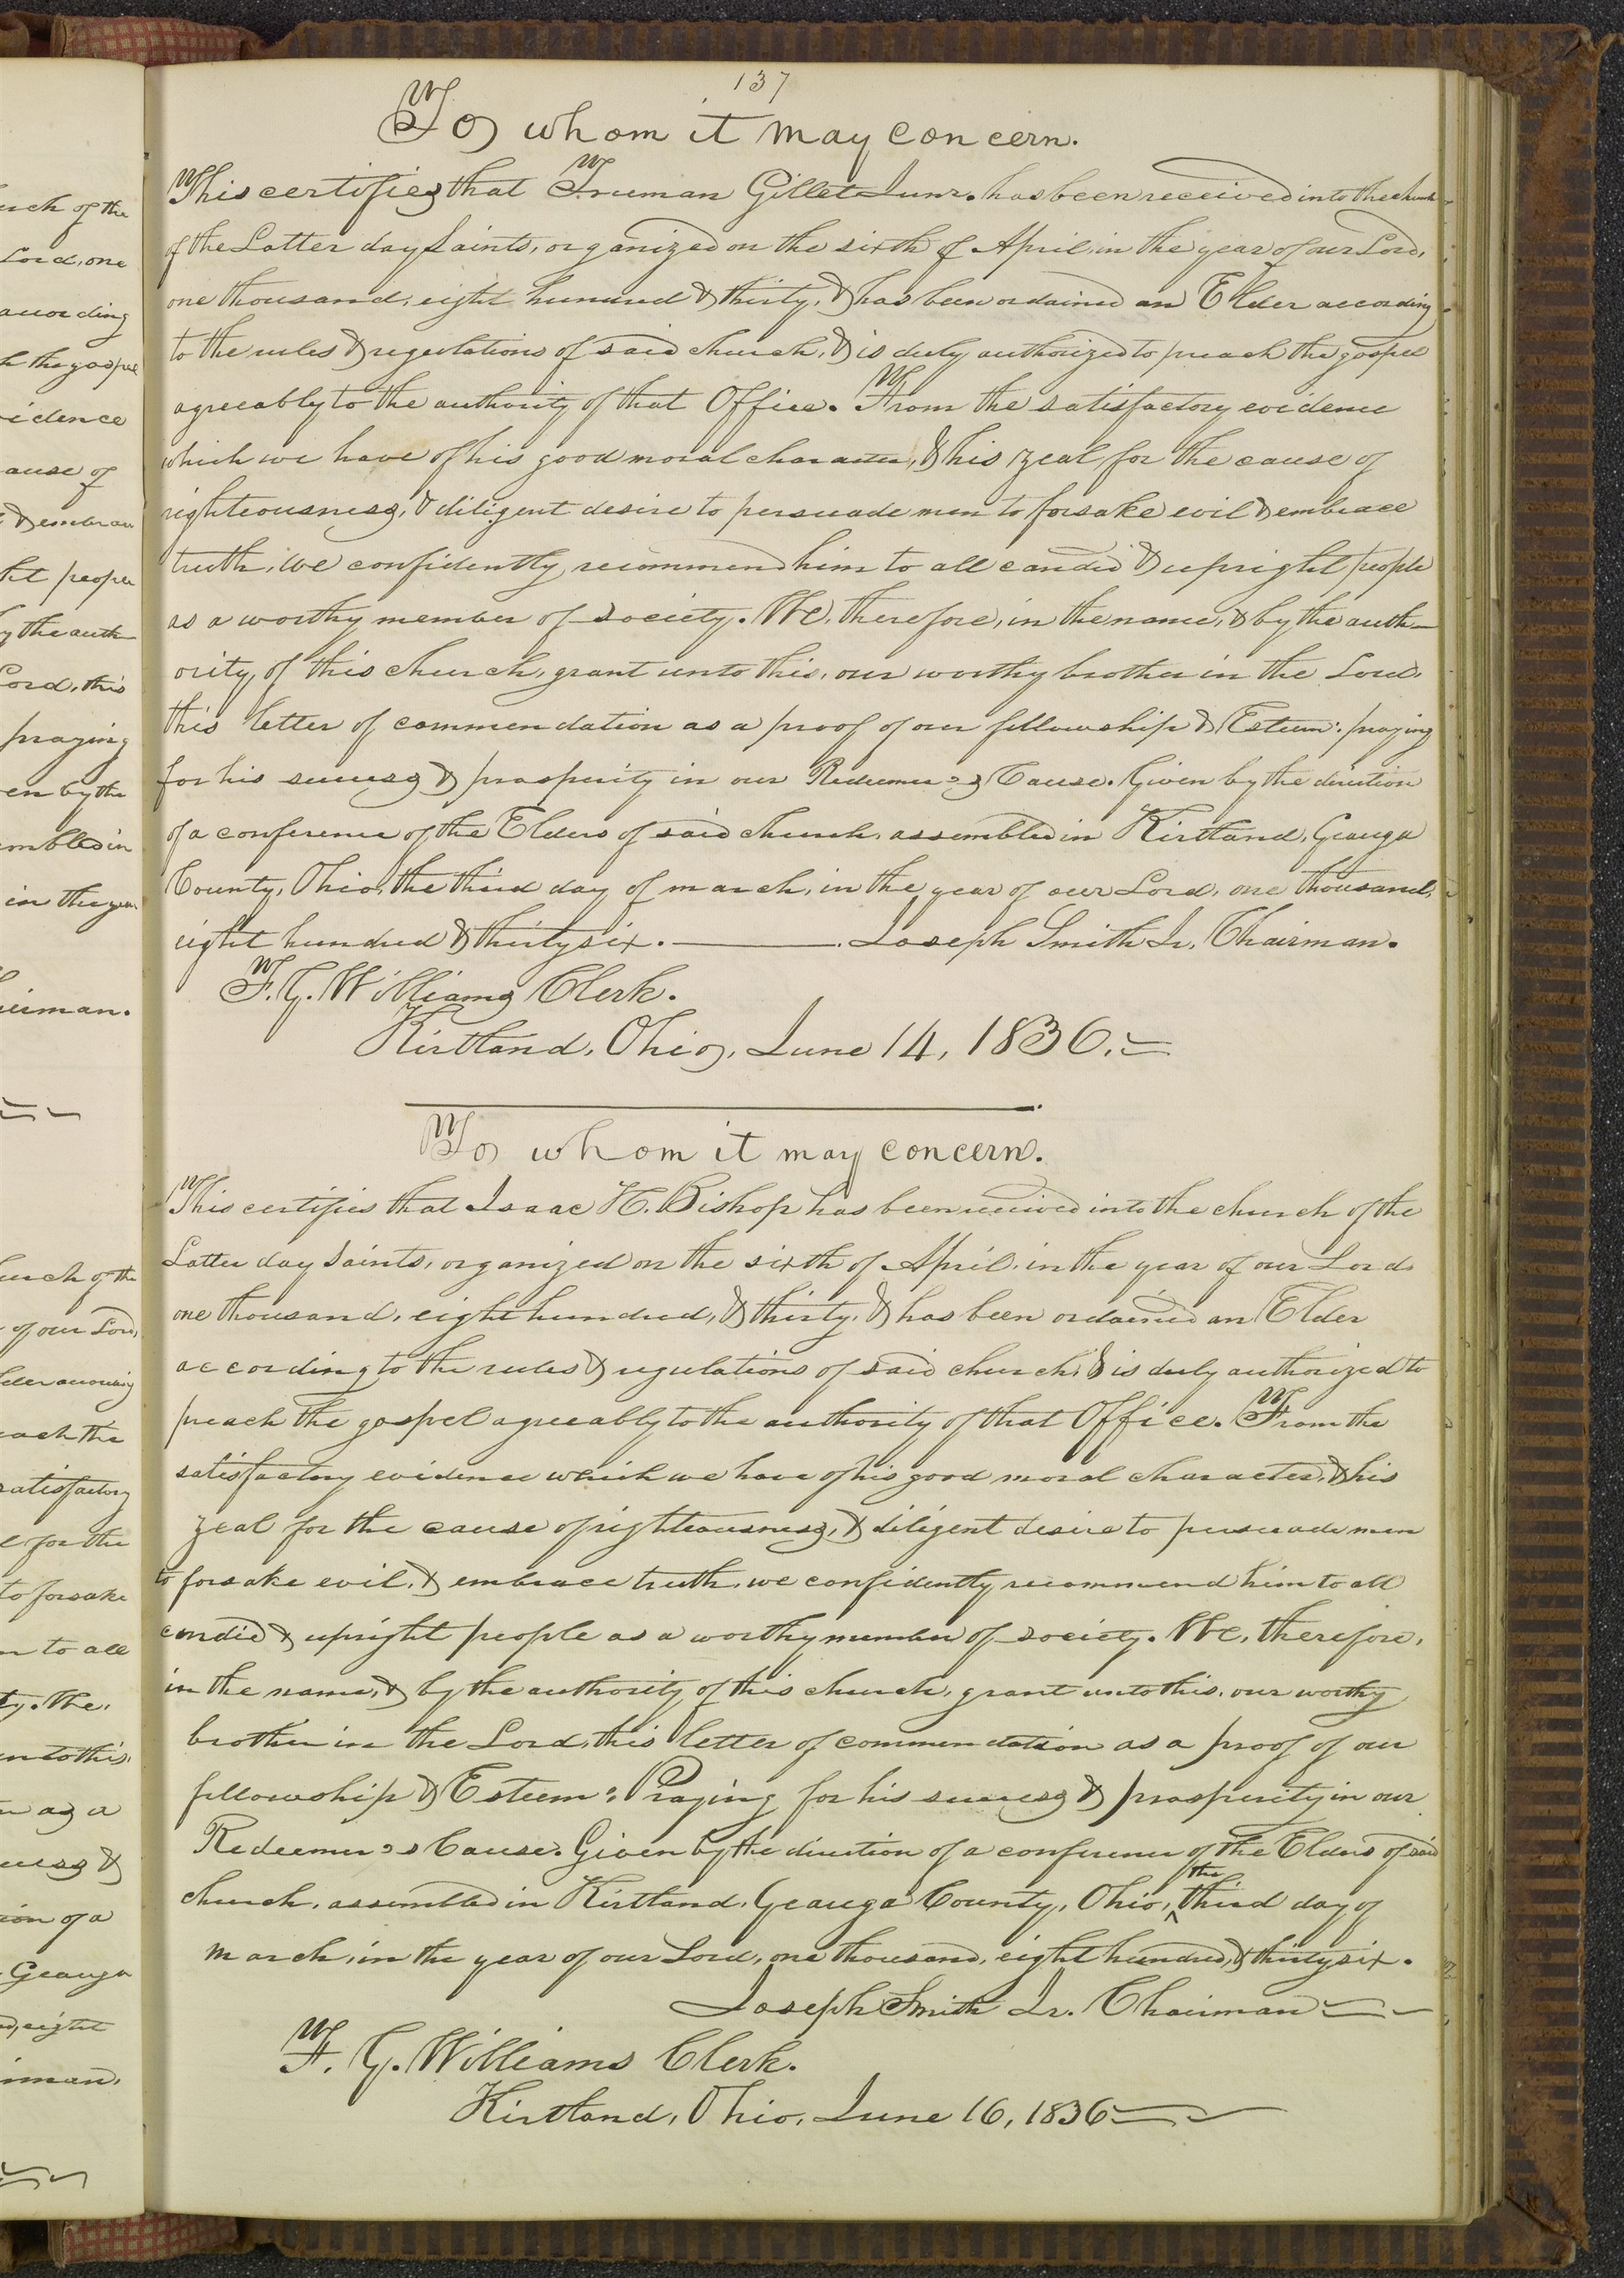 137
To whom it may concern.
This certifies that Truman Gillet Junr. has been received into the church
of the Latter day Saints, organized on the sixth of April, in the year of our Lord,
one thousand, eight hundred & thirty, & has been ordained an Elder according
to the rules & regulations of said church, & is duly authorized to preach the gospel
agreeably to the authority of that Office. From the satisfactory evidence
which we have of his good moral character, & his zeal for the cause of
righteousness, & diligent desire to persuade men to forsake evil & embrace
truth, we confidently recommend him to all candid & upright people
as a worthy member of society. We, therefore, in the name, & by the auth-
ority of this church, grant unto this, our worthy brother in the Lord,
this letter of commendation as a proof of our fellowship & Esteem: praying
for his success & prosperity in our Redeemer's Cause. Given by the direction
of a conference of the Elders of said church, assembled in Kirtland, Geauga
County, Ohio, the third day of march, in the year of our Lord, one thousand,
eight hundred & thirty six. ———. Joseph Smith Jr. Chairman.
F. G. Williams Clerk.
Kirtland, Ohio, June 14, 1836.
To whom it may concern.
This certifies that Isaac H. Bishop has been received into the church of the
Latter day Saints, organized on the sixth of April, in the year of our Lord
one thousand, eight hundred, & thirty, & has been ordained an Elder
according to the rules & regulations of said church, & is duly authorized to
preach the gospel agreeably to the authority of that Office. From the
satisfactory evidence which we have of his good moral character, & his
zeal for the cause of righteousness, & diligent desire to persuade men
to forsake evil, & embrace truth, we confidently recommend him to all
candid & upright people as a worthy member of society. We, therefore,
in the name, & by the authority of this church, grant unto this, our worthy
brother in the Lord, this letter of commendation as a proof of our
fellowship & Esteem: Praying for his success & prosperity in our
Redeemer's Cause. Given by the direction of a conference of the Elders of said
church, assembled in Kirtland, Geauga County, Ohio, the third day of
march, in the year of our Lord, one thousand, eight hundred, & thirty six.
Joseph Smith Jr. Chairman
F. G. Williams Clerk.
Kirtland, Ohio, June 16, 1836